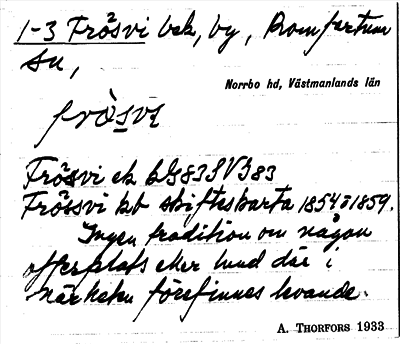 1-3 Frösvi bek, by, Romfartuna
sn,
Norrbo hd, Västmanlands län
fròsvi
Frösvi ek bG83SV383
Frössvi kb skifteskarta 1854 o 1859.
Ingen tradition om någon
offerplats eller lund där i
närheten förefinnes levande.
A. THORFORS 1933